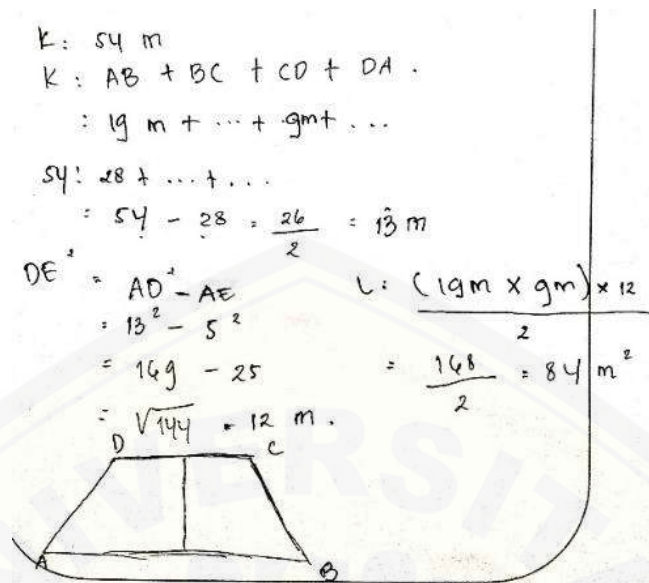 K : 54 m
K : AB + BC + CD + DA .
: 19 m + ... + 9m + ...
54 : 28 + ... + ...
: 54 - 28 = 26/2 = 13 m
DE² = AD² - AE
= 13² - 5²
= 169 - 25
= √144 = 12 m .
L : (19m × 9m) × 12 / 2
= 168/2 = 84 m²
D C
A B